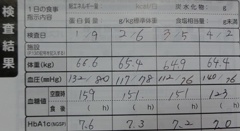 検査結果
1日の食事
指示内容
総エネルギー量
炭水化物 g
蛋白質 g
g/kg標準体重
食塩相当量
g未満
検査日 1/9 2/6 3/5 4/2
施設
体重(kg) 66.6 65.4 64.9 64.4
血圧(mmHg) 132/80 117/78 112/76 140/76
血糖値 空腹時 159 151 151 123
(h) (h) (h) (h)
HbA1c(NGSP) 7.6 7.3 7.2 7.0